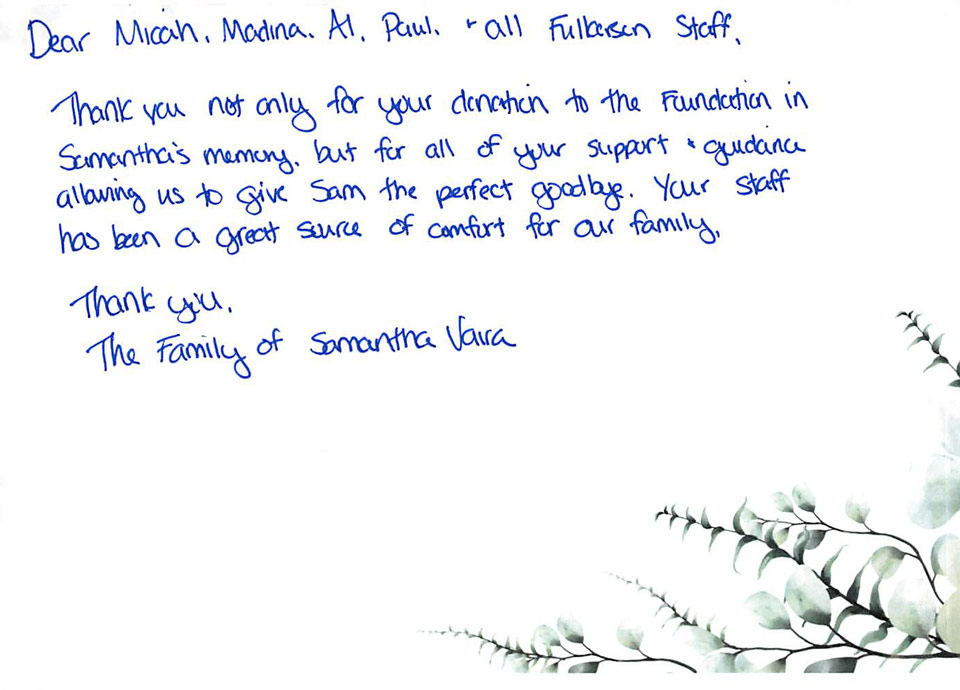 Dear Micah, Madina, Al, Paul, + all Fulkerson Staff,
Thank you not only for your donation to the Foundation in
Samantha's memory, but for all of your support + guidance
allowing us to give Sam the perfect goodbye. Your staff
has been a great source of comfort for our family.
Thank you,
The Family of Samantha Vaira